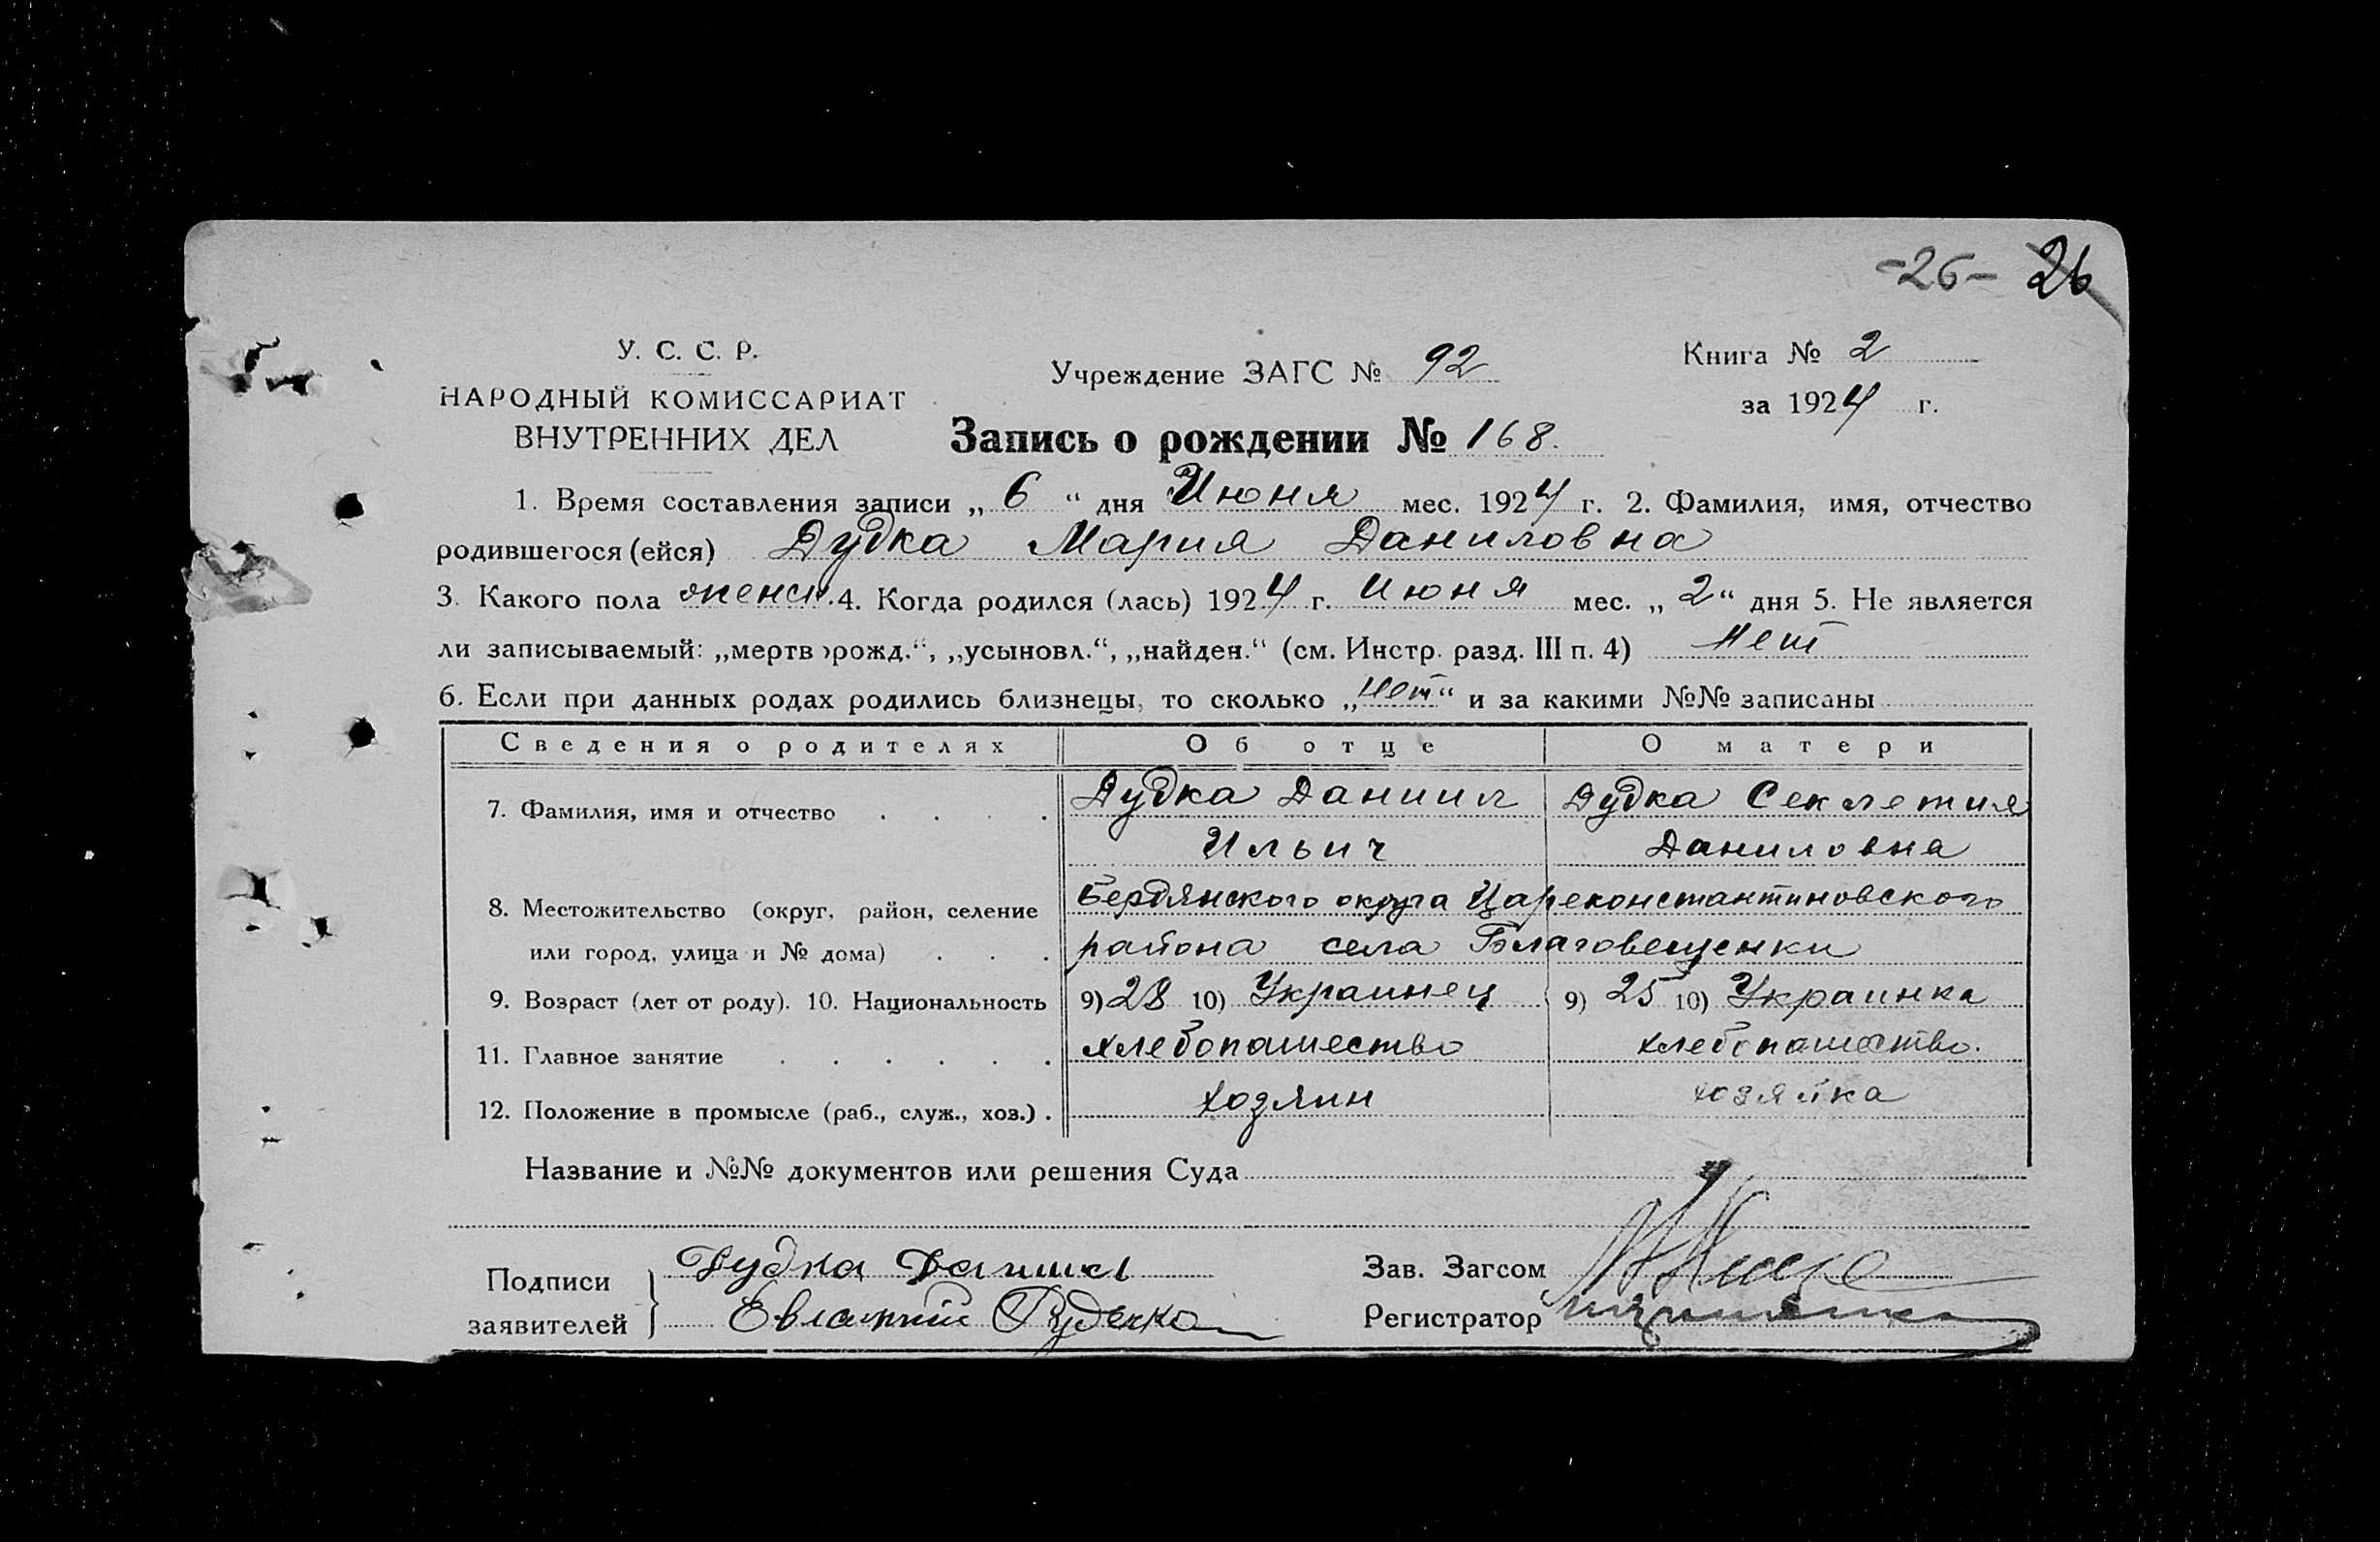 -26- 26
У. С. С. Р.
НАРОДНЫЙ КОМИССАРИАТ
ВНУТРЕННИХ ДЕЛ
Учреждение ЗАГС № 92
Книга № 2
за 1924 г.
Запись о рождении № 168.
1. Время составления записи „ 6 “ дня Июня мес. 1924 г. 2. Фамилия, имя, отчество
родившегося (ейся) Дудка Мария Даниловна
3. Какого пола женск. 4. Когда родился (лась) 1924 г. Июня мес. „ 2 “ дня 5. Не является
ли записываемый: „мертворожд.“, „усыновл.“, „найден.“ (см. Инстр. разд. III п. 4) Нет
6. Если при данных родах родились близнецы, то сколько „нет“ и за какими №№ записаны
Сведения о родителях Об отце О матери
7. Фамилия, имя и отчество . . . . Дудка Даниил Дудка Секлетия
Ильич Даниловна
8. Местожительство (округ, район, селение Бердянского округа Цареконстантиновского
или город, улица и № дома) . . . района села Благовещенки
9. Возраст (лет от роду). 10. Национальность 9) 28 10) Украинец 9) 25 10) Украинка
11. Главное занятие . . . . . . хлебопашество хлебопашество.
12. Положение в промысле (раб., служ., хоз.) . хозяин хозяйка
Название и №№ документов или решения Суда
Подписи
заявителей
Дудка Данил
Евлампий Руденко
Зав. Загсом
Регистратор